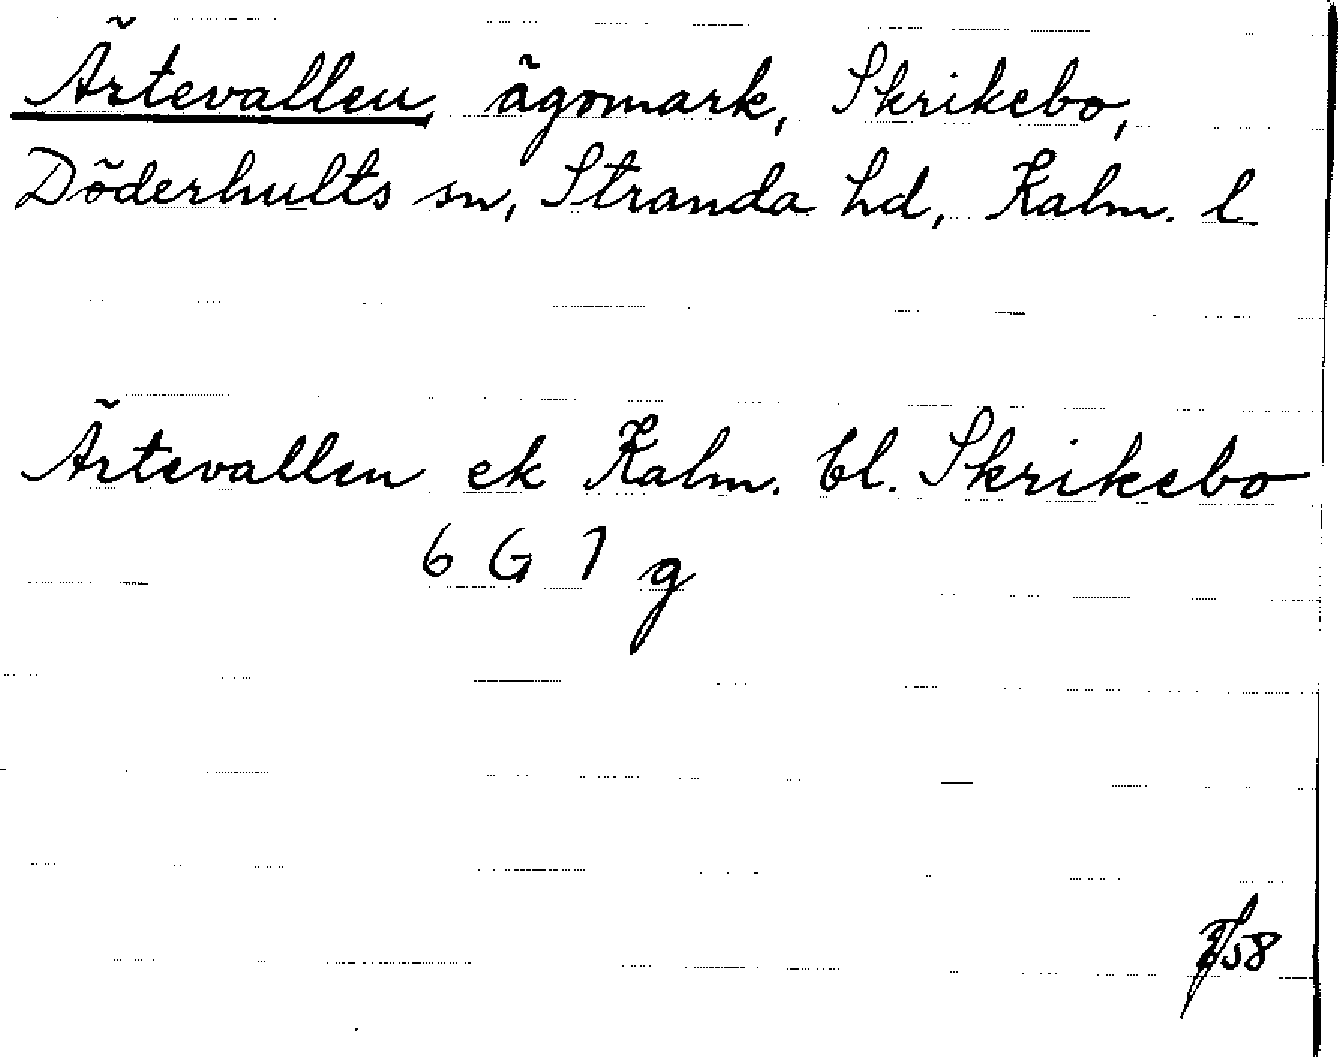 Ärtevallen ägomark, Skrikebo,
Döderhults sn, Stranda hd, Kalm. l
Ärtevallen ek Kalm. bl. Skrikebo
6 G 7 g
58